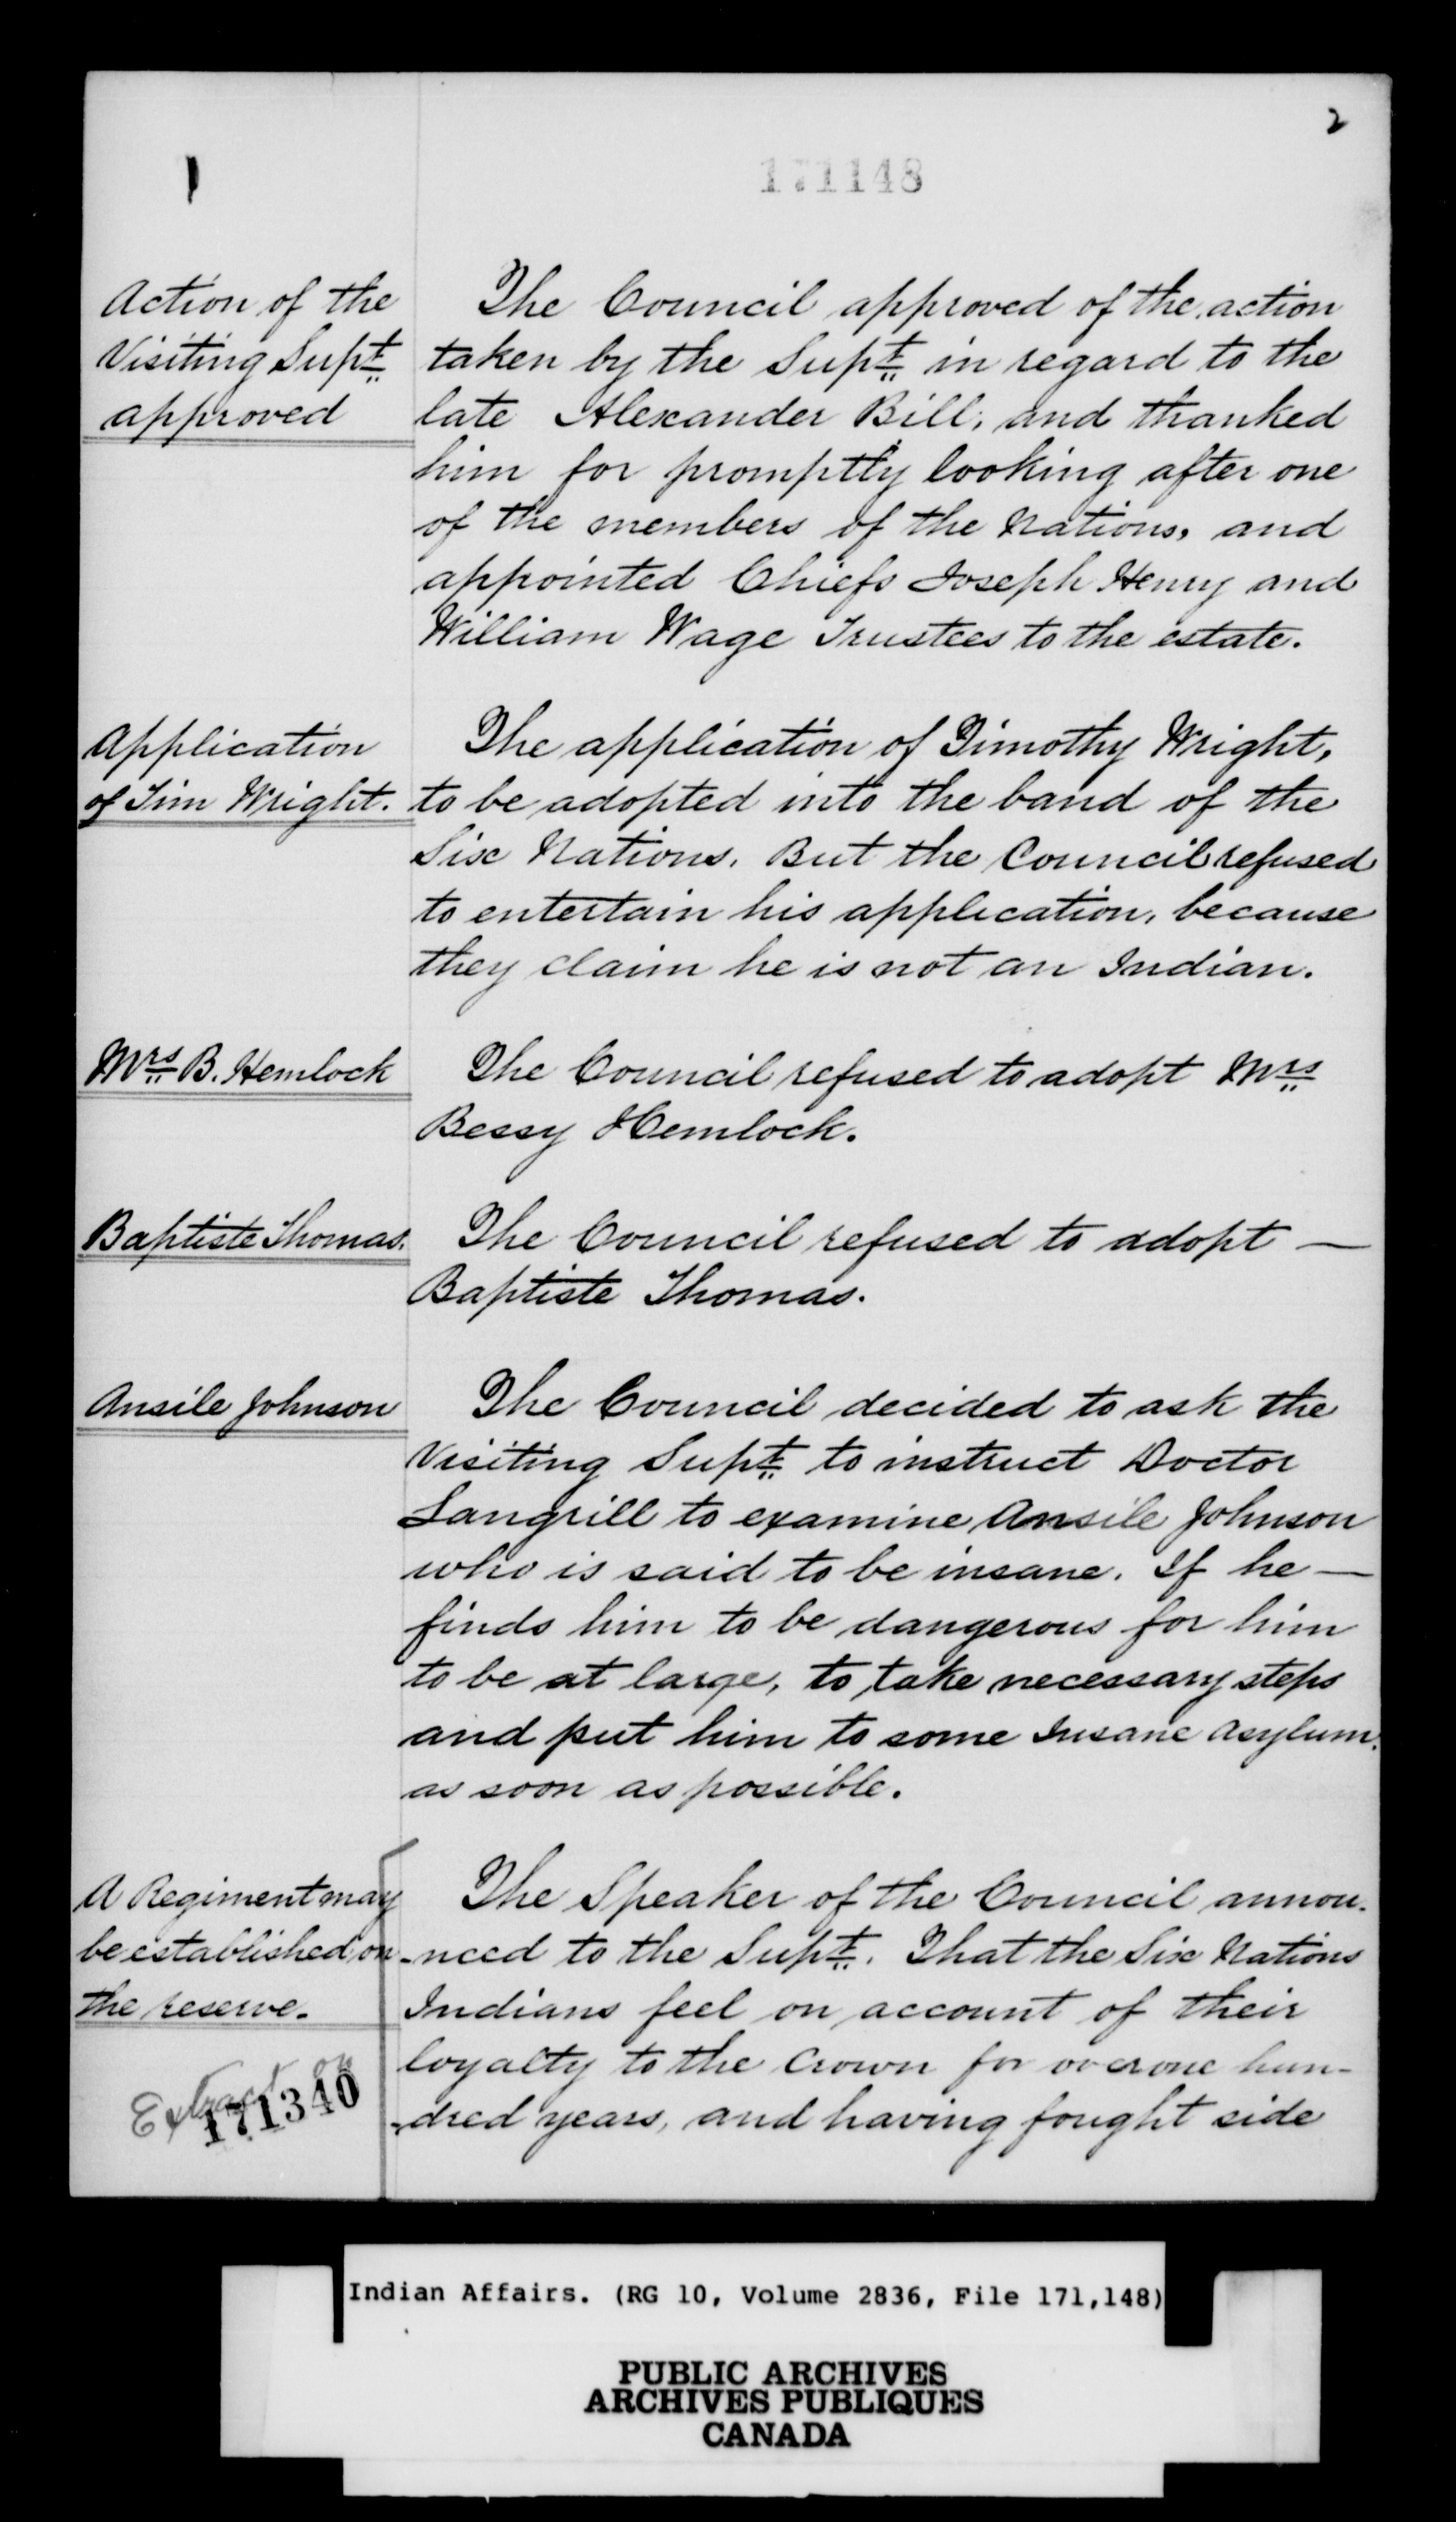 2
171148
Action of the
Visiting Supt
approved
The Council approved of the action
taken by the Supt in regard to the
late Alexander Bill, and thanked
him for promptly looking after one
of the members of the Nations, and
appointed Chiefs Joseph Henry and
William Wage Trustees to the estate.
Application
of Tim Wright.
The application of Timothy Wright,
to be adopted into the band of the
Six Nations. But the Council refused
to entertain his application, because
they claim he is not an Indian.
Mrs B. Hemlock
The Council refused to adopt Mrs
Bessy Hemlock.
Baptiste Thomas.
The Council refused to adopt —
Baptiste Thomas.
Ansile Johnson
The Council decided to ask the
Visiting Supt to instruct Doctor
Langrill to examine Ansile Johnson
who is said to be insane. If he —
finds him to be dangerous for him
to be at large, to take necessary steps
and put him to some Insane Asylum.
as soon as possible.
A Regiment may
be established on
the reserve.
Extract on
171340
The Speaker of the Council annou-
-nced to the Supt. That the Six Nations
Indians feel on account of their
loyalty to the Crown for over one hun-
-dred years, and having fought side
Indian Affairs. (RG 10, Volume 2836, File 171,148)
PUBLIC ARCHIVES
ARCHIVES PUBLIQUES
CANADA